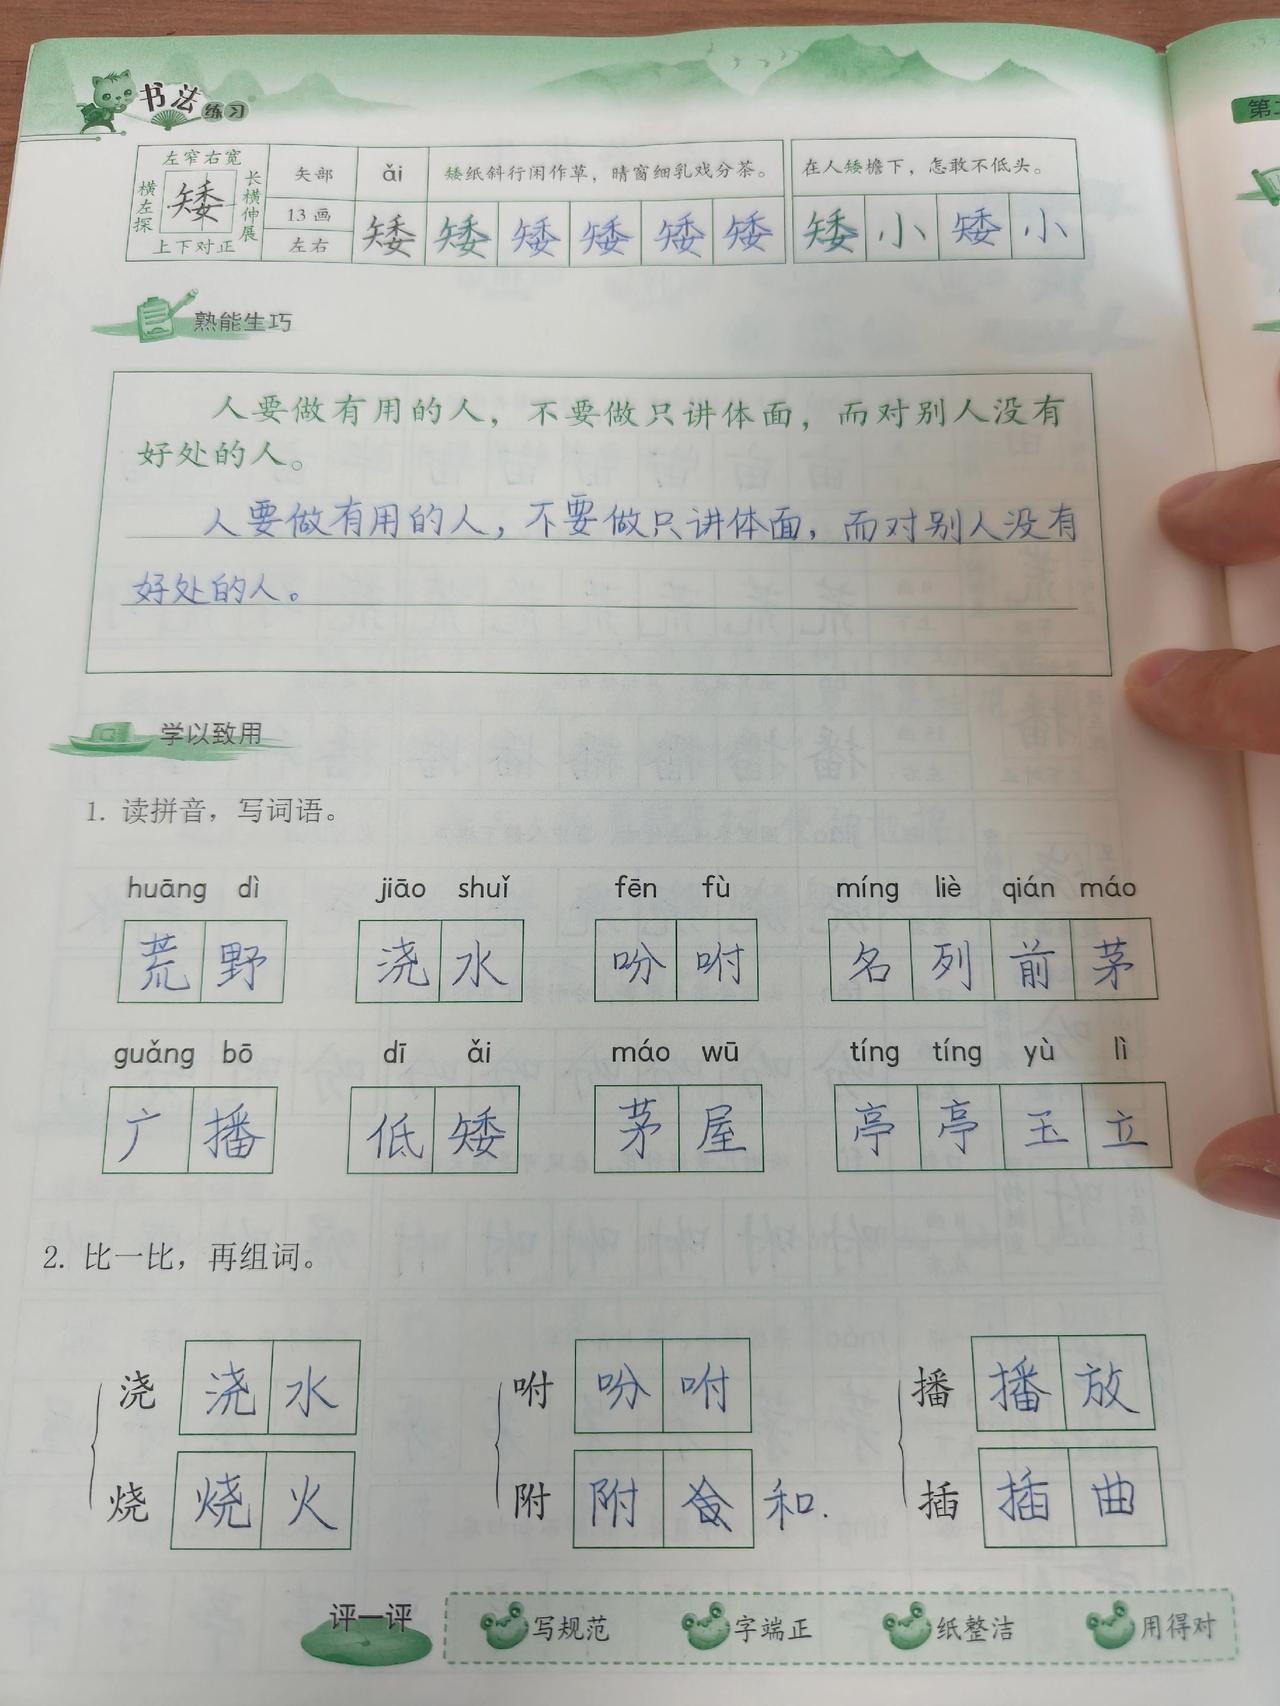 书法练习
第二
左窄右宽
横左探
矮
长横伸展
上下对正
矢部
13画
左右
ǎi
矮纸斜行闲作草，晴窗细乳戏分茶。
矮 矮 矮 矮 矮 矮
在人矮檐下，怎敢不低头。
矮 小 矮 小
熟能生巧
人要做有用的人，不要做只讲体面，而对别人没有
好处的人。
人要做有用的人，不要做只讲体面，而对别人没有
好处的人。
学以致用
1. 读拼音，写词语。
huāng dì jiāo shuǐ fēn fù míng liè qián máo
荒野 浇水 吩咐 名列前茅
guǎng bō dī ǎi máo wū tíng tíng yù lì
广播 低矮 茅屋 亭亭玉立
2. 比一比，再组词。
浇 浇水 咐 吩咐 播 播放
烧 烧火 附 附 和. 插 插曲
评一评 写规范 字端正 纸整洁 用得对